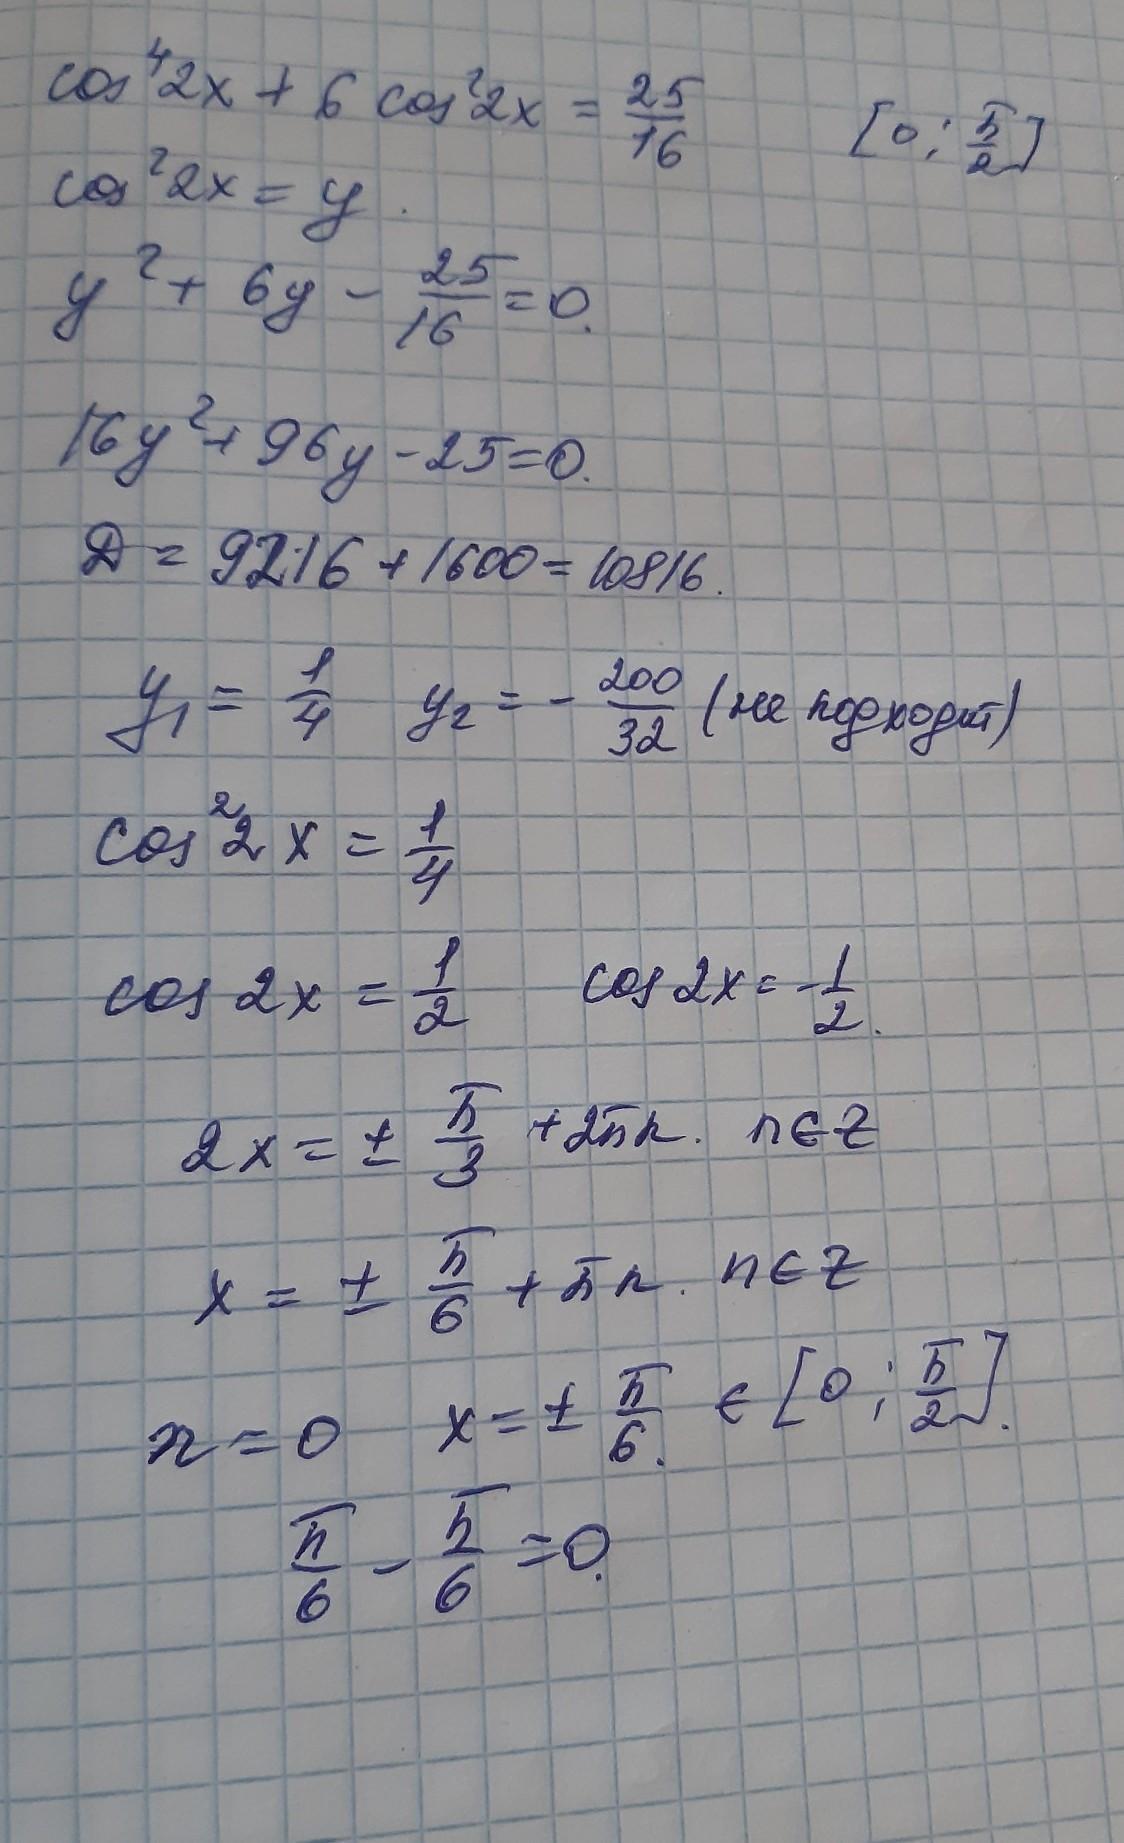 cos⁴2x + 6 cos²2x = 25/16 [0; π/2]
cos²2x = y.
y² + 6y - 25/16 = 0.
16y² + 96y - 25 = 0.
D = 9216 + 1600 = 10816.
y₁ = 1/4 y₂ = - 200/32 (не подходит)
cos²2x = 1/4
cos 2x = 1/2 cos 2x = -1/2.
2x = ± π/3 + 2πn. n∈Z
x = ± π/6 + πn. n∈Z
n = 0 x = ± π/6. ∈ [0; π/2].
π/6 - π/6 = 0.